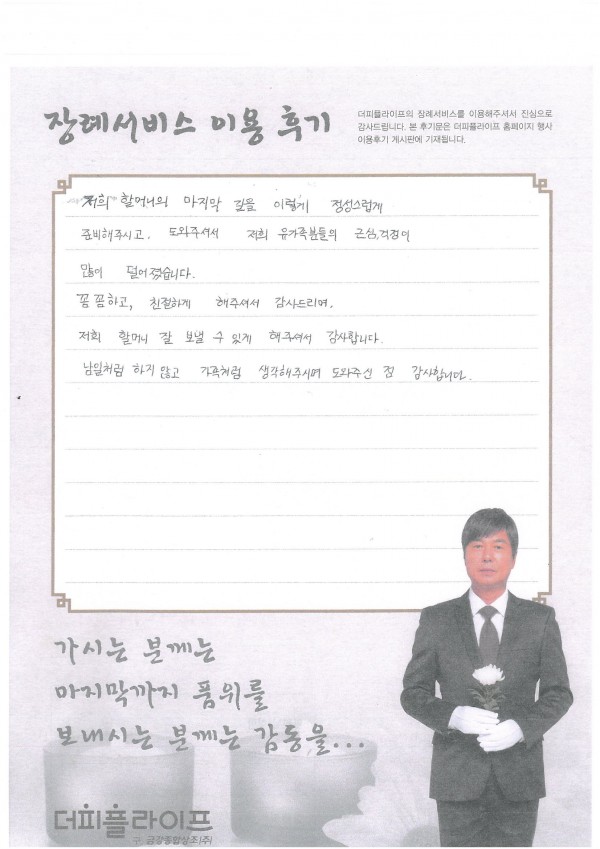 장례서비스 이용 후기
더피플라이프의 장례서비스를 이용해주셔서 진심으로
감사드립니다. 본 후기문은 더피플라이프 홈페이지 행사
이용후기 게시판에 기재됩니다.
저희 할머니의 마지막 길을 이렇게 정성스럽게
준비해주시고, 도와주셔서 저희 유가족분들의 근심,걱정이
많이 덜어졌습니다.
꼼꼼하고, 친절하게 해주셔서 감사드리며,
저희 할머니 잘 보낼 수 있게 해주셔서 감사합니다.
남일처럼 하지 않고 가족처럼 생각해주시며 도와주신 점 감사합니다.
가시는 분께는
마지막까지 품위를
보내시는 분께는 감동을...
더피플라이프
구) 금강종합상조(주)